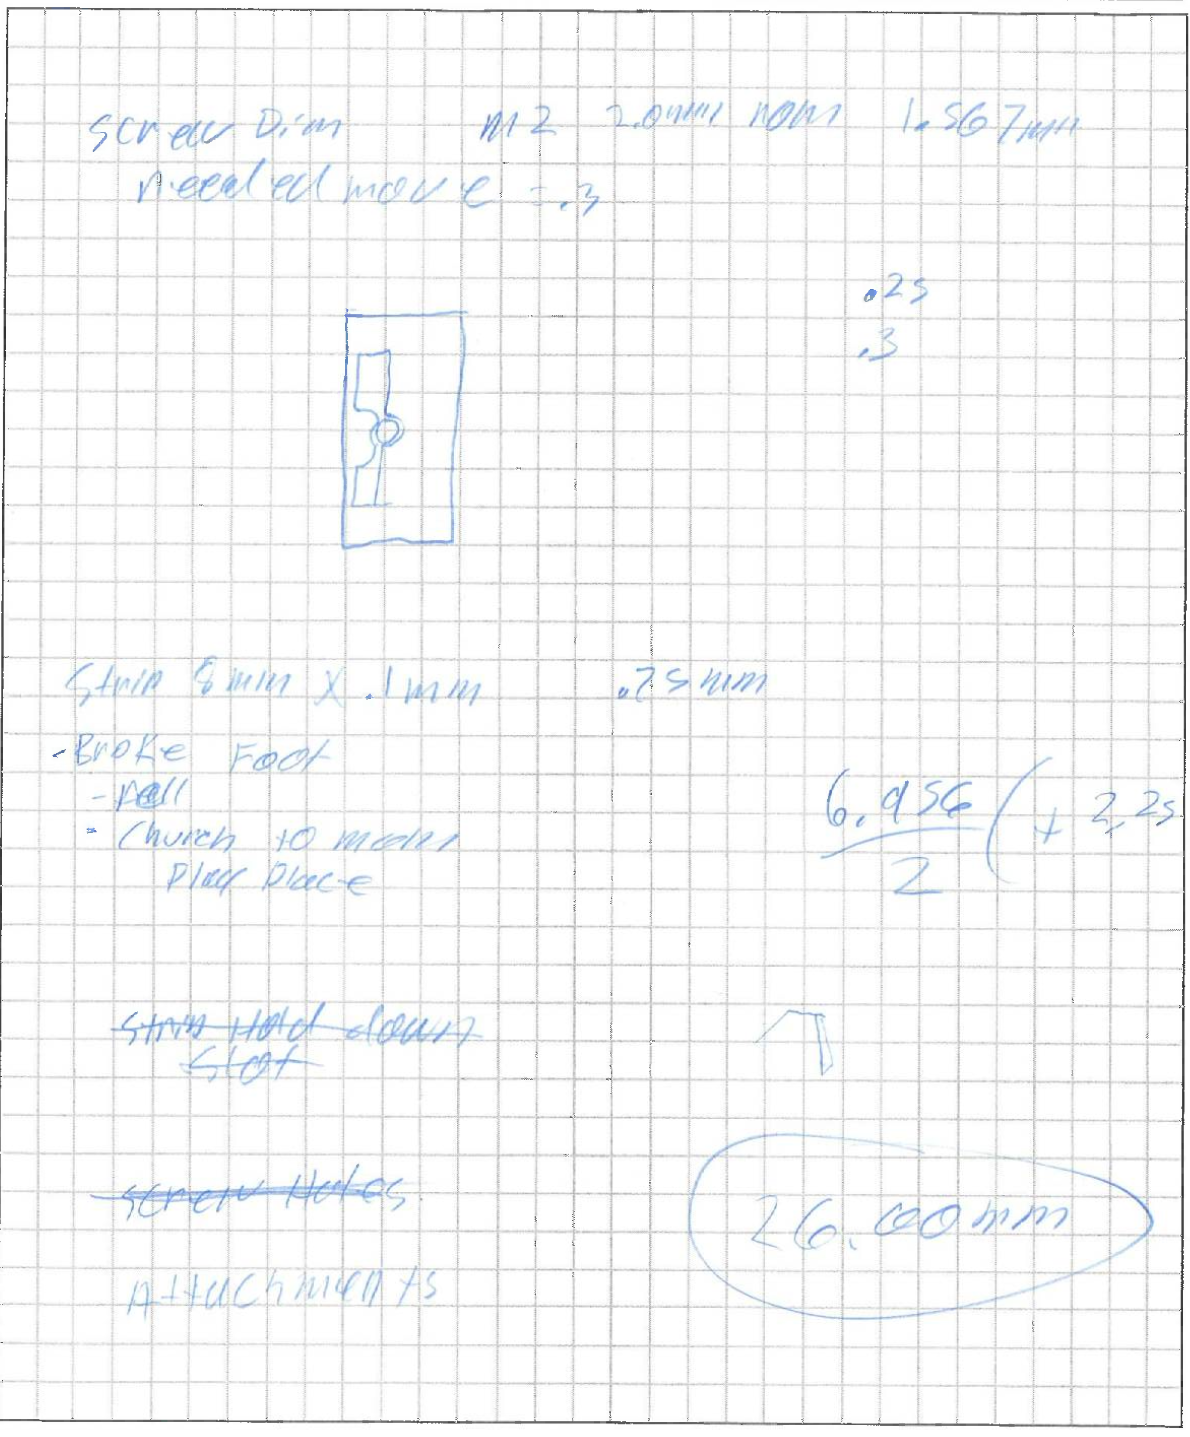 Screw Dim M2 2.0mm nom 1.567mm
needed move = .3
.25
.3
Strip 8mm X .1mm .25mm
- Broke Foot
- Fell
- Church to
Play Place
6.956 ( + 2.25
2
Strip Hold down
Slot
Screw Holes
26.00mm
Attachments